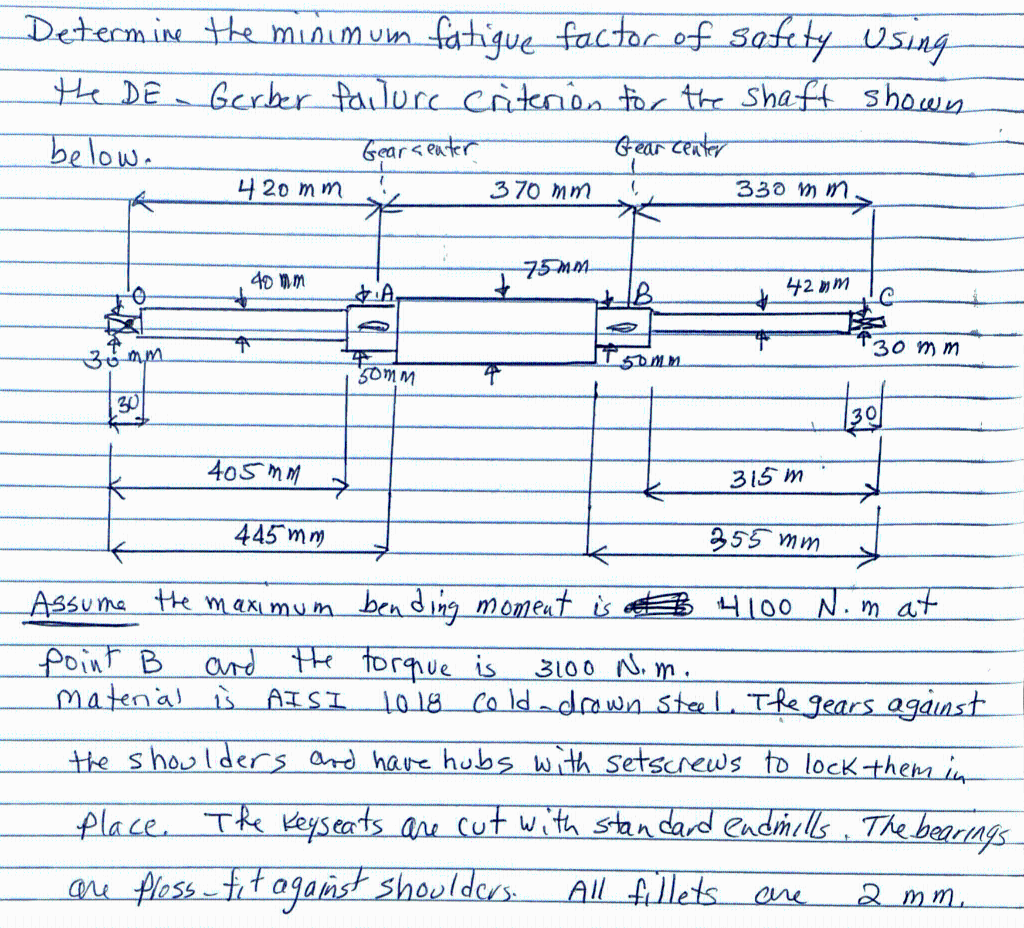 Determine the minimum fatigue factor of safety Using
the DE - Gerber failure criterion for the shaft shown
below.
Gear center
Gear center
420 mm
370 mm
330 mm
75 mm
40 mm
42 mm
O
A
B
C
30 mm
50mm
50mm
30 mm
30
30
405 mm
315 m
445 mm
355 mm
Assume the maximum bending moment is 4100 N.m at
point B and the torque is 3100 N.m.
material is AISI 1018 Cold-drawn steel. The gears against
the shoulders and have hubs with setscrews to lock them in
place. The keyseats are cut with standard endmills. The bearings
are ploss-fit against shoulders. All fillets are 2 mm.